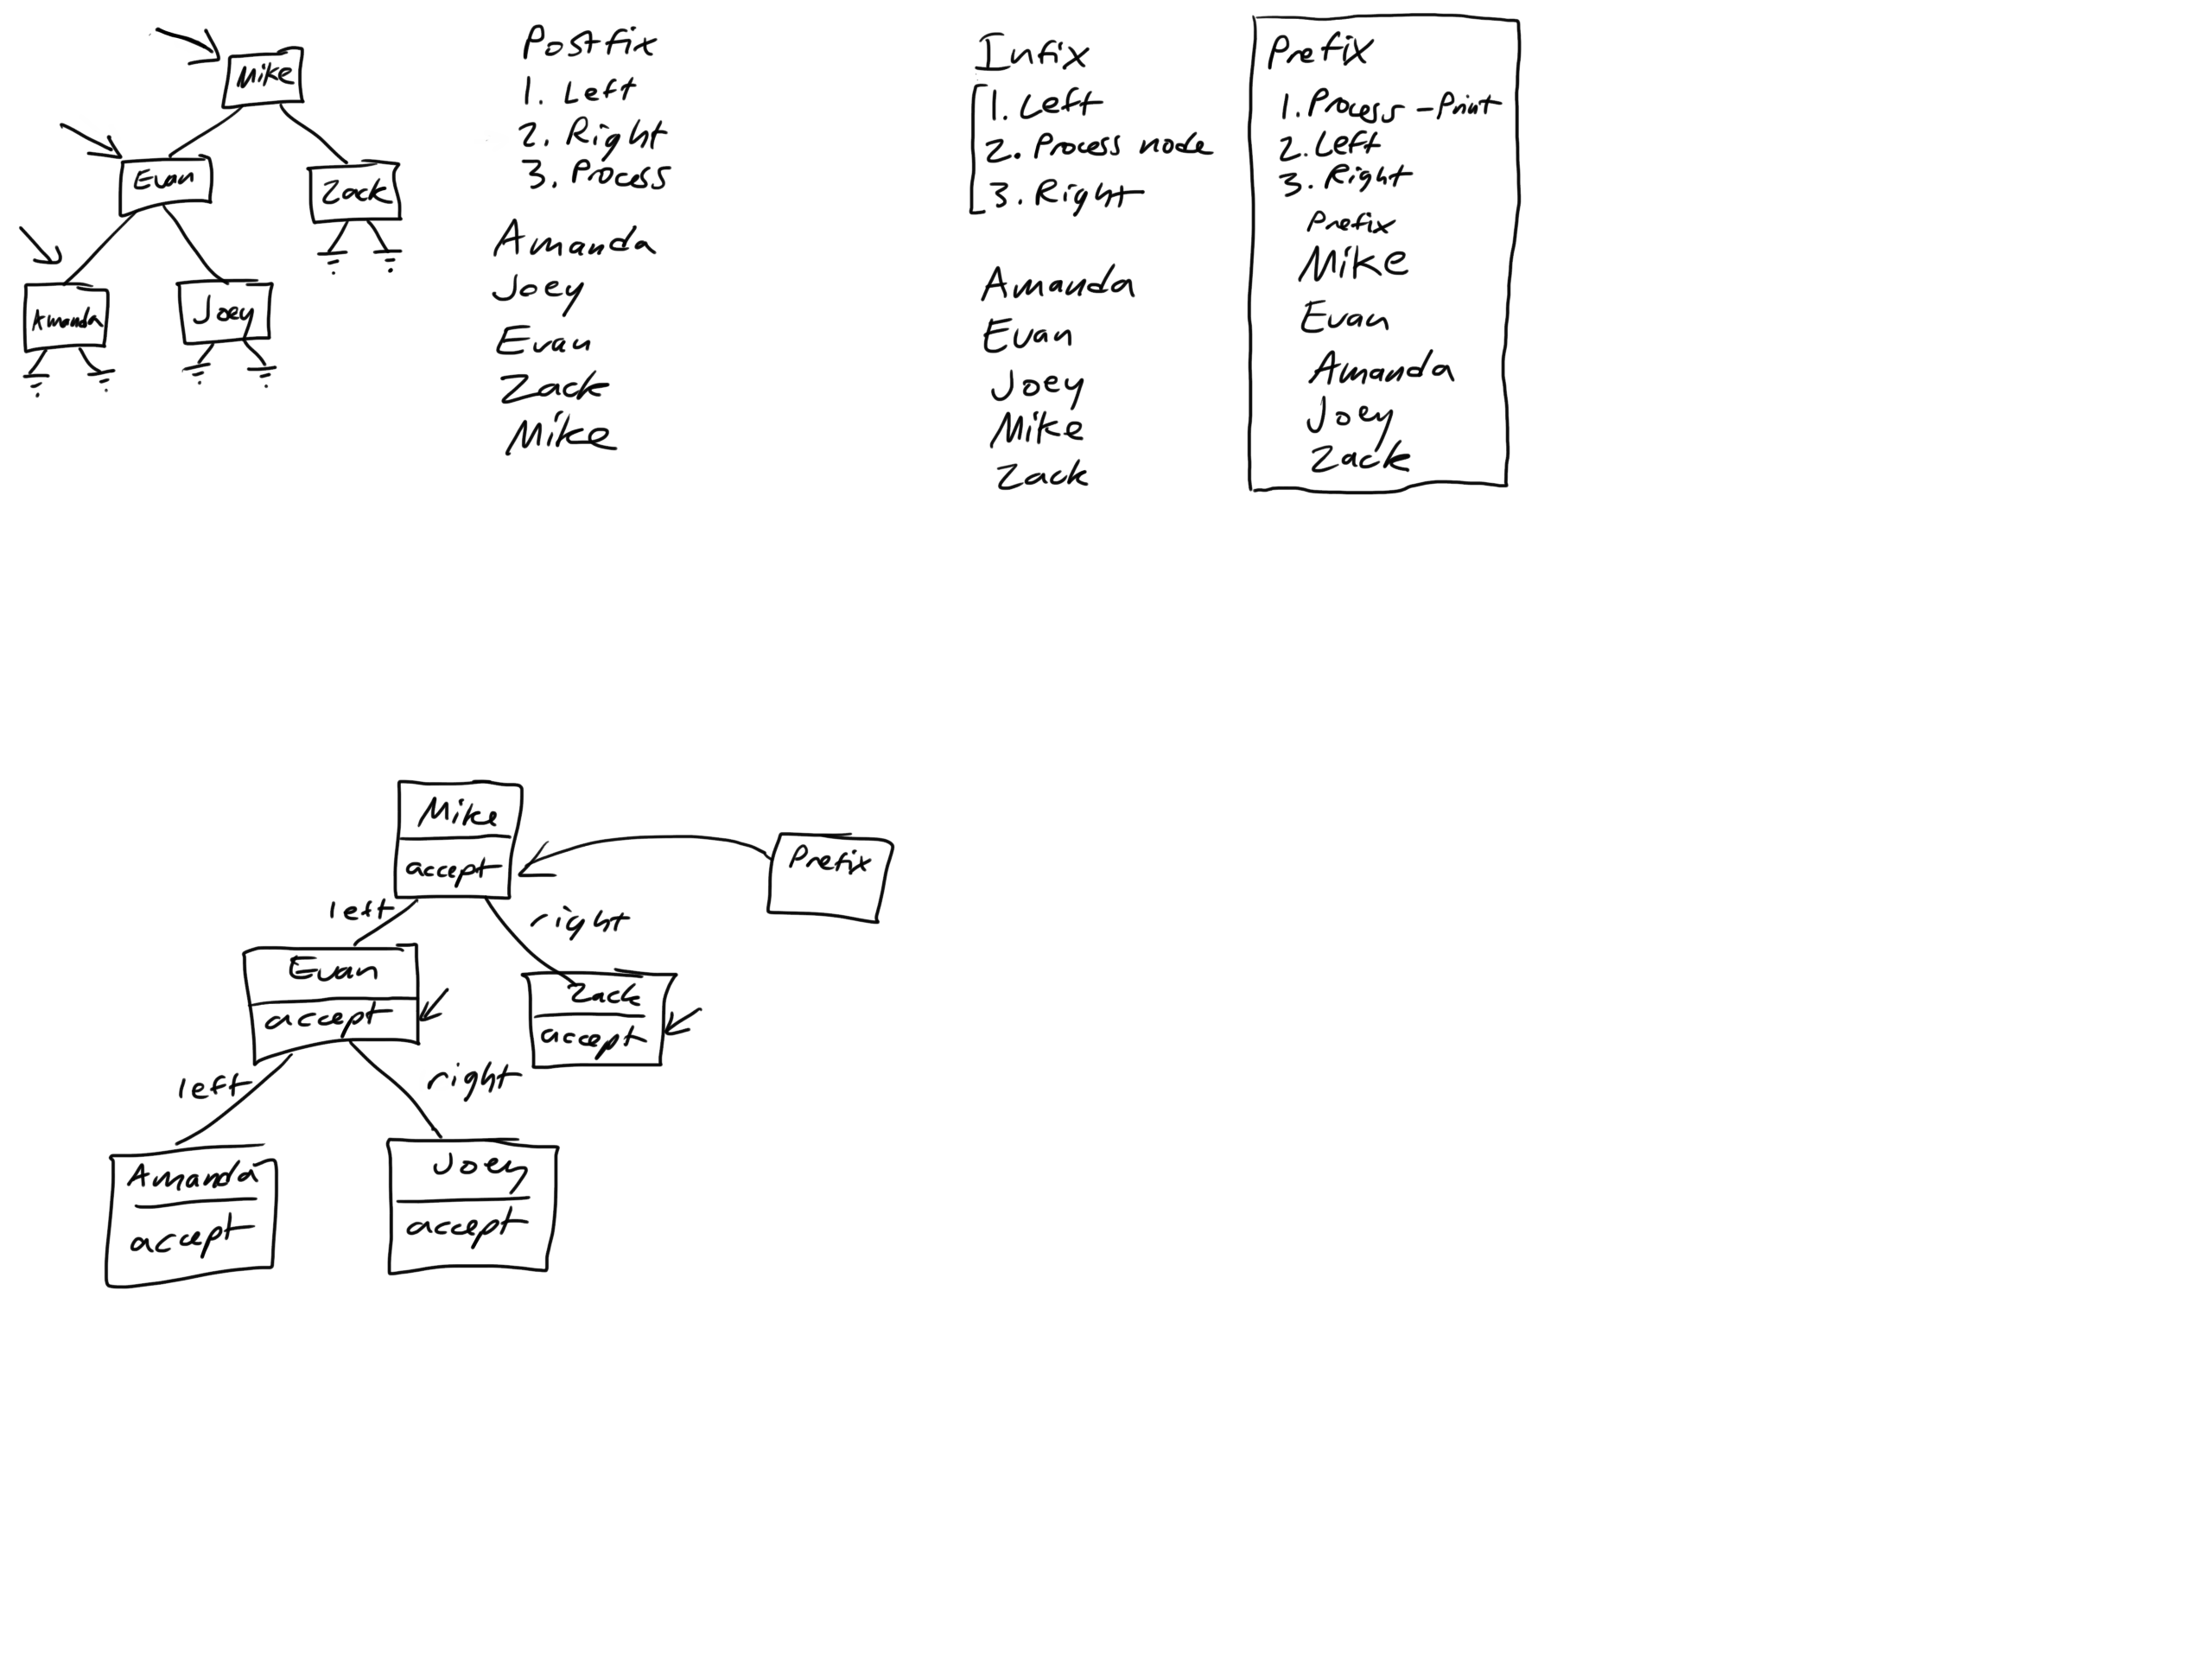 Mike
Evan
Zack
Amanda
Joey
Postfix
1. Left
2. Right
3. Process
Amanda
Joey
Evan
Zack
Mike
Infix
1. Left
2. Process node
3. Right
Amanda
Evan
Joey
Mike
Zack
Prefix
1. Process - Print
2. Left
3. Right
Prefix
Mike
Evan
Amanda
Joey
Zack
Mike
accept
Prefix
left
right
Evan
accept
Zack
accept
left
right
Amanda
accept
Joey
accept